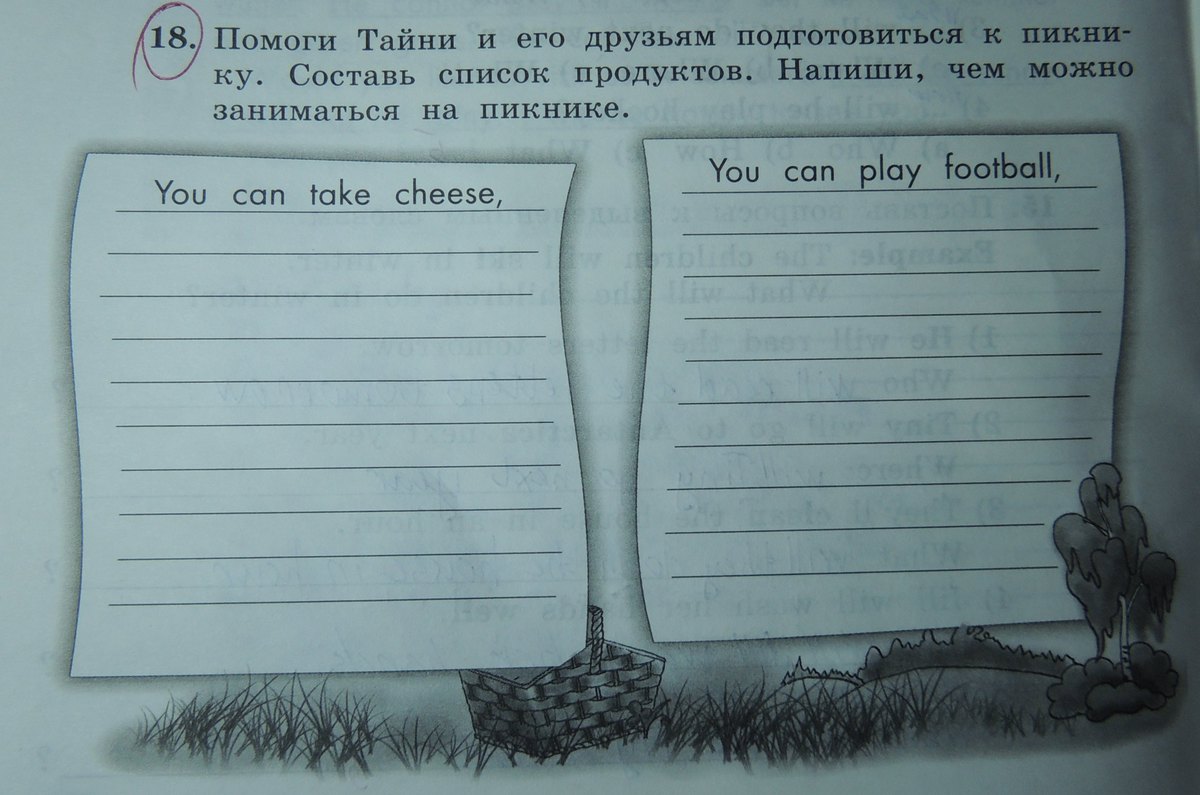 18. Помоги Тайни и его друзьям подготовиться к пикни-
ку. Составь список продуктов. Напиши, чем можно
заниматься на пикнике.
You can take cheese,
You can play football,